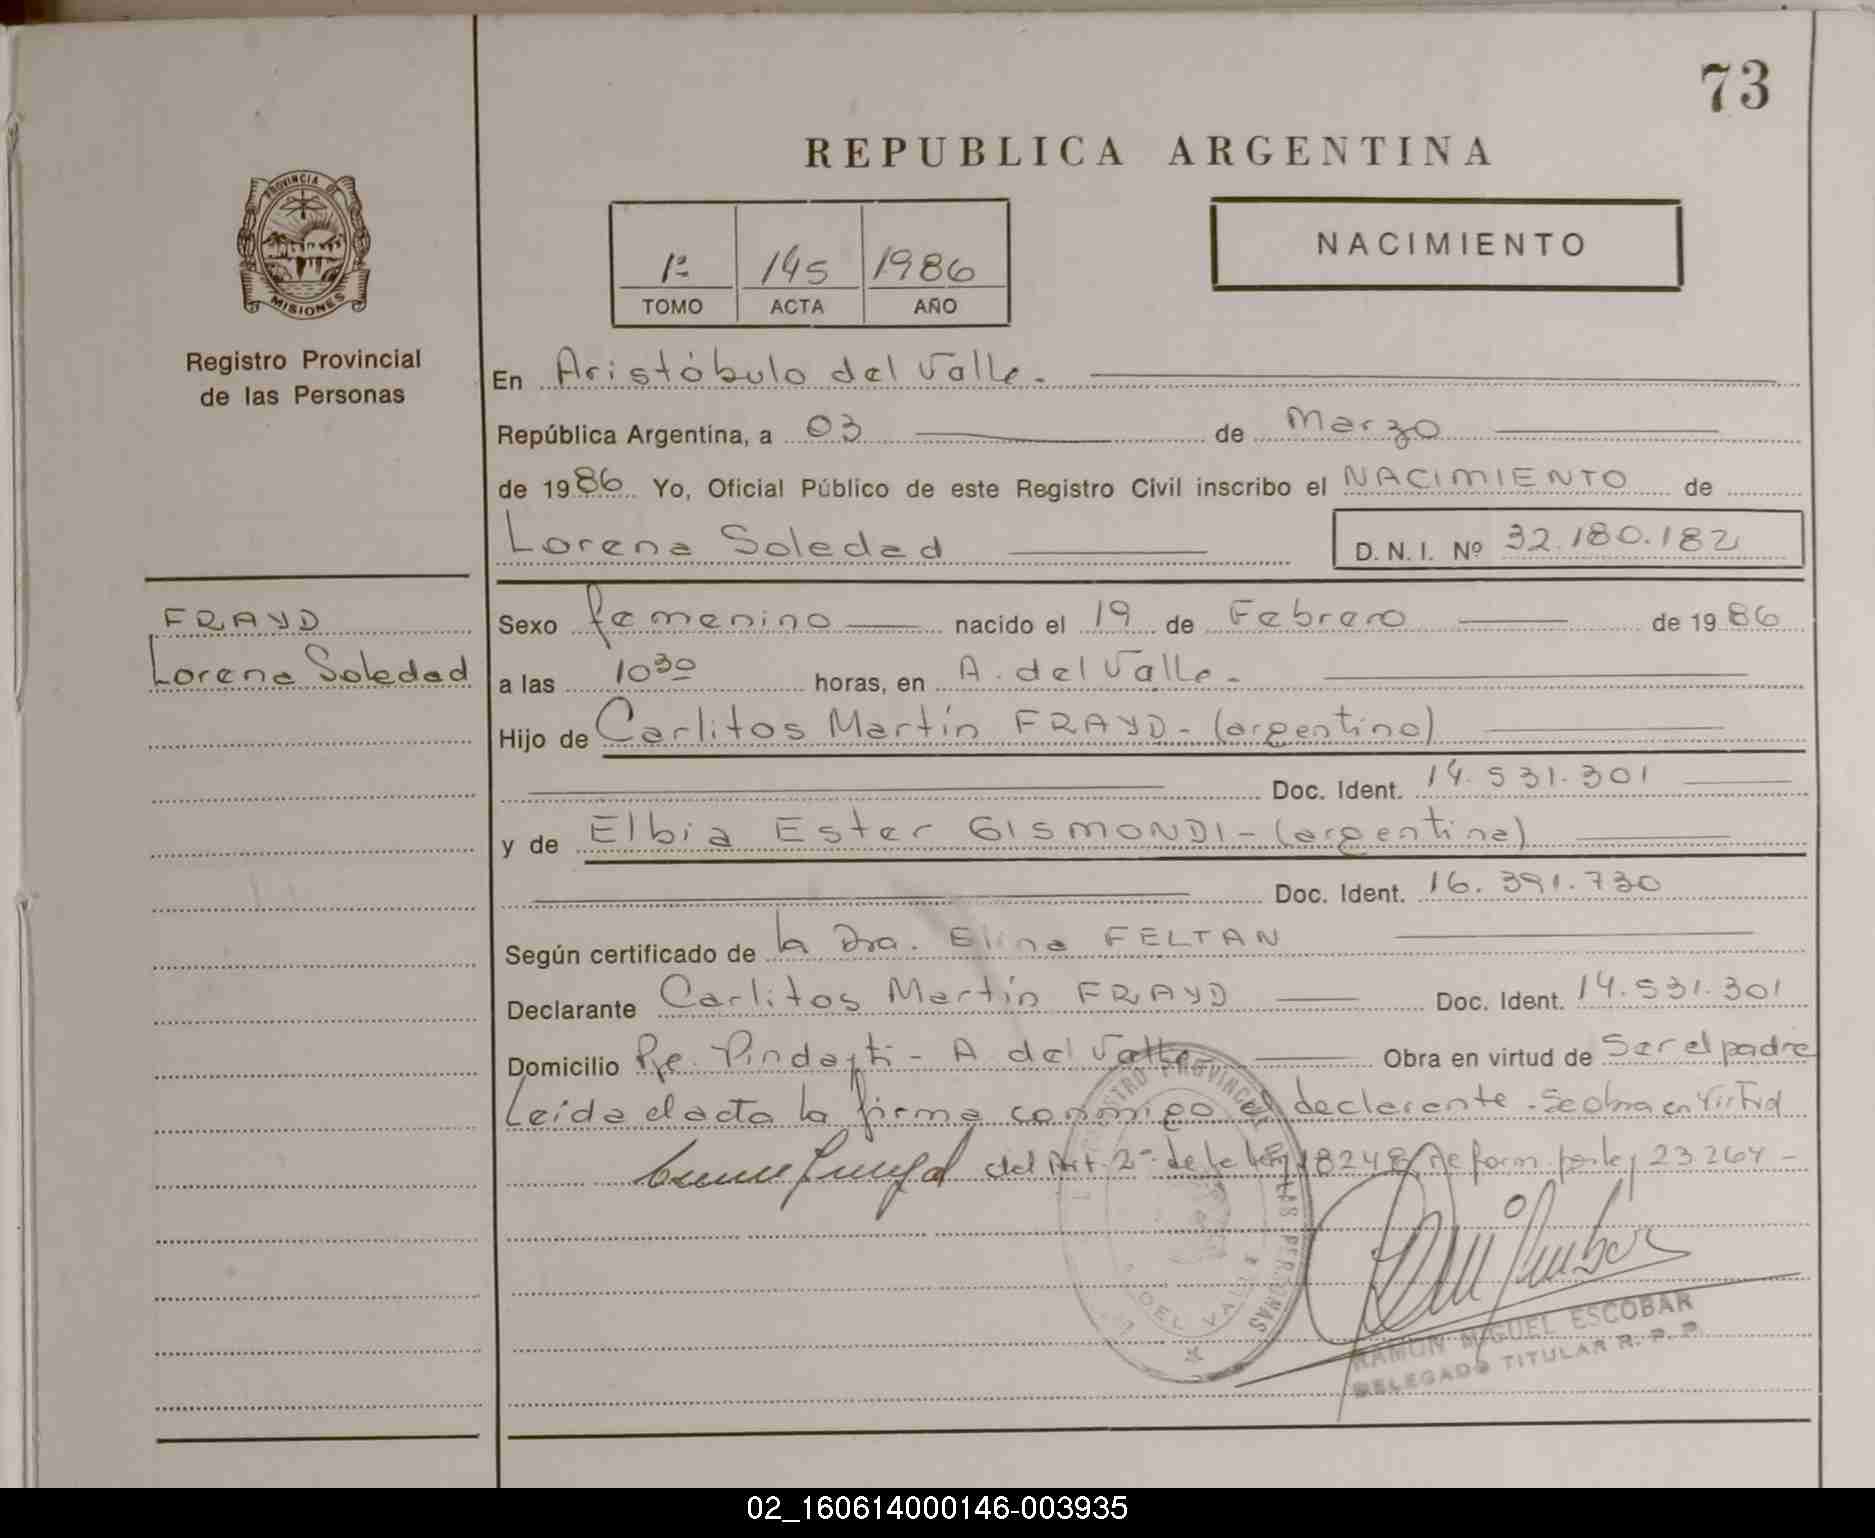 73
REPUBLICA ARGENTINA
PROVINCIA DE
MISIONES
1º 145 1986
TOMO ACTA AÑO
NACIMIENTO
Registro Provincial
de las Personas
En Aristóbulo del Valle.
República Argentina, a 03 de Marzo
de 1986 Yo, Oficial Público de este Registro Civil inscribo el NACIMIENTO de
Lorena Soledad D. N. I. Nº 32.180.182
FRAYD
Lorena Soledad
Sexo femenino nacido el 19 de Febrero de 1986
a las 10 30 horas, en A. del Valle.
Hijo de Carlitos Martín FRAYD - (argentino)
Doc. Ident. 14.531.301
y de Elbia Ester GISMONDI - (argentina)
Doc. Ident. 16.391.730
Según certificado de la Dra. Elina FELTAN
Declarante Carlitos Martín FRAYD Doc. Ident. 14.531.301
Domicilio Pje. Pindayti - A. del Valle Obra en virtud de Ser el padre
Leída el acta la firma conmigo el declarante. Se obra en Virtud
del Art. 2º de la Ley 18248 Reform. por ley 23.264 -
REGISTRO PROVINCIAL DE LAS PERSONAS
DEL VALLE
RAMON MIGUEL ESCOBAR
DELEGADO TITULAR R. P. P.
02_160614000146-003935